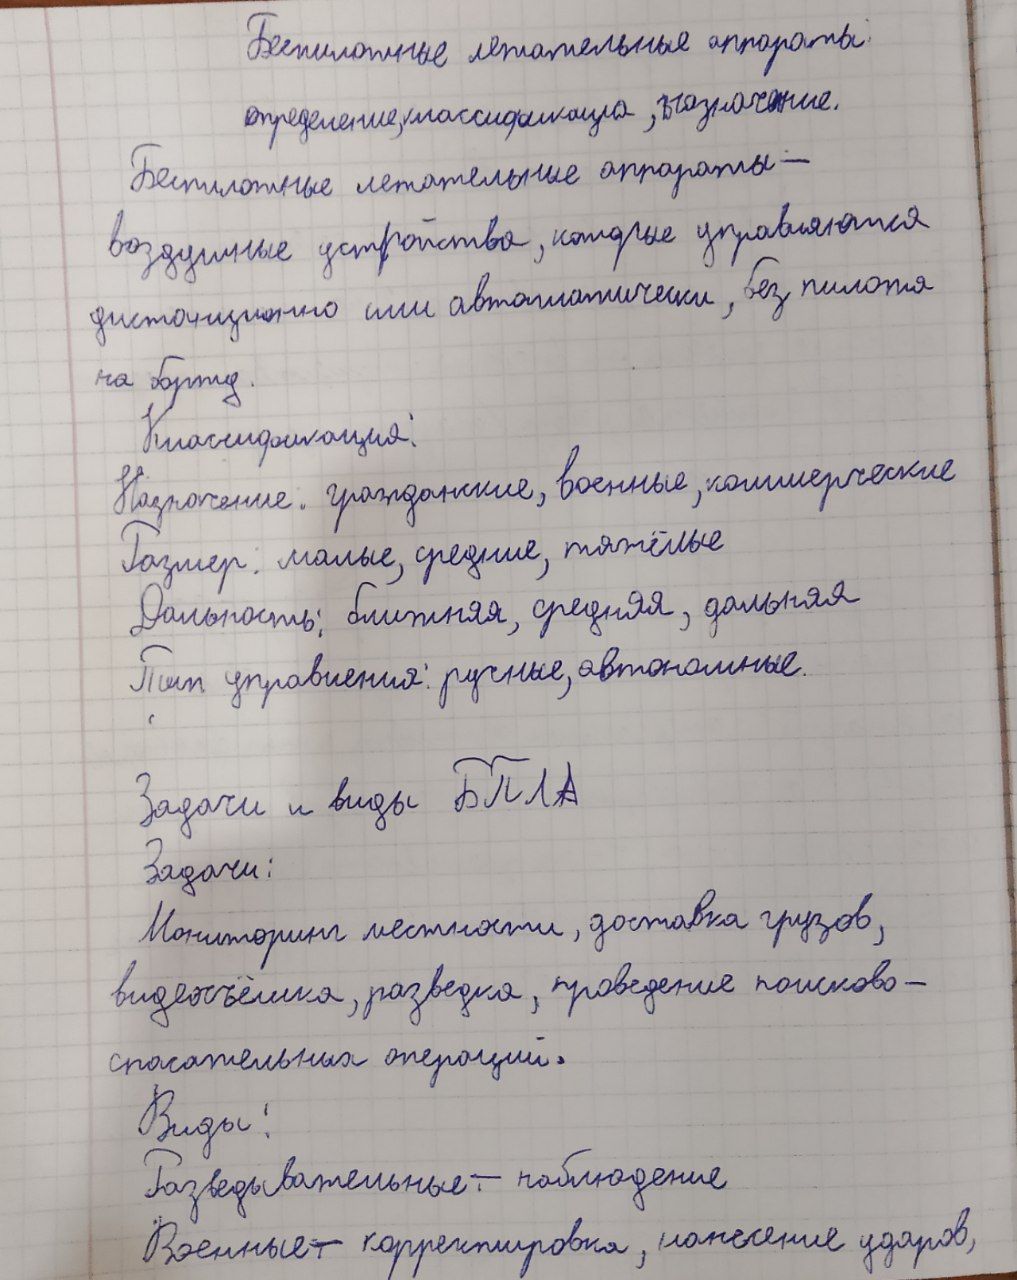 Беспилотные летательные аппараты:
определение, классификация, назначение.
Беспилотные летательные аппараты —
воздушные устройства, которые управляются
дистанционно или автоматически, без пилота
на борту.
Классификация:
Назначение: гражданские, военные, коммерческие
Размер: малые, средние, тяжёлые
Дальность: ближняя, средняя, дальняя
Тип управления: ручные, автономные.
Задачи и виды БПЛА
Задачи:
Мониторинг местности, доставка грузов,
видеосъёмка, разведка, проведение поисково-
спасательных операций.
Виды:
Разведывательные - наблюдение
Военные - корректировка, нанесение ударов,